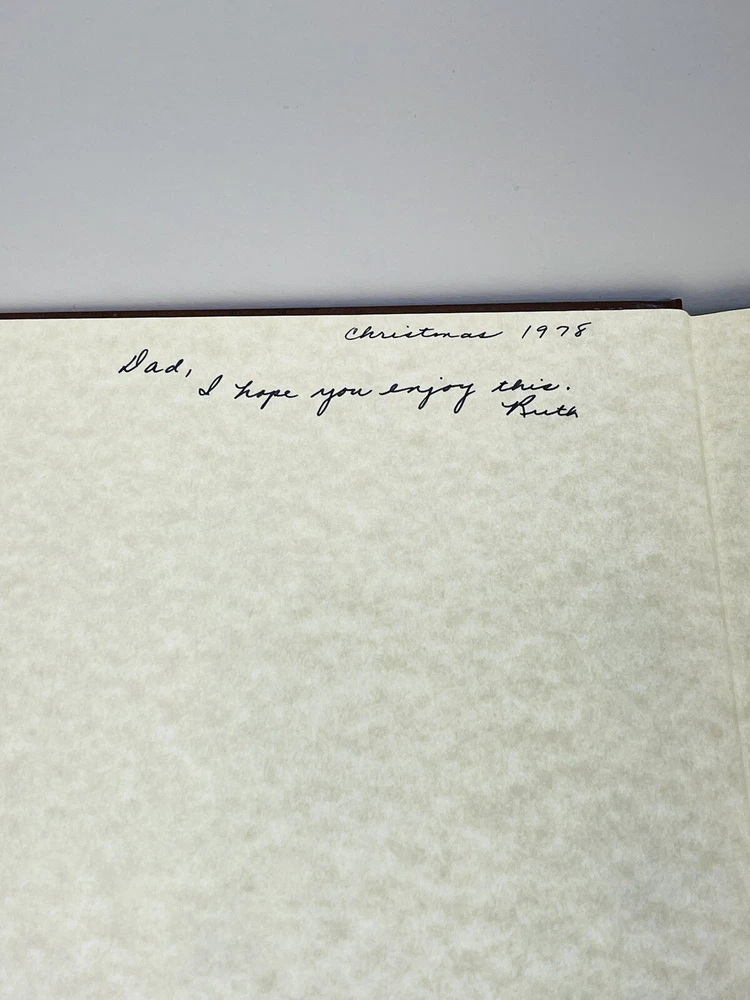 Christmas 1978
Dad,
I hope you enjoy this.
Ruth